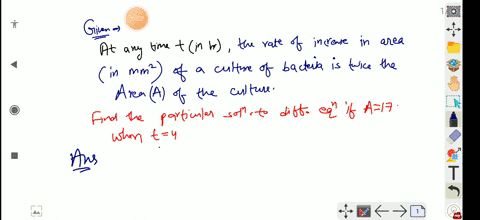 Given →
At any time t (in hr), the rate of increase in area
(in mm²) of a culture of bacteria is twice the
Area (A) of the culture.
Find the particular solⁿ. to diff. eqⁿ if A=17.
when t=4
Ans